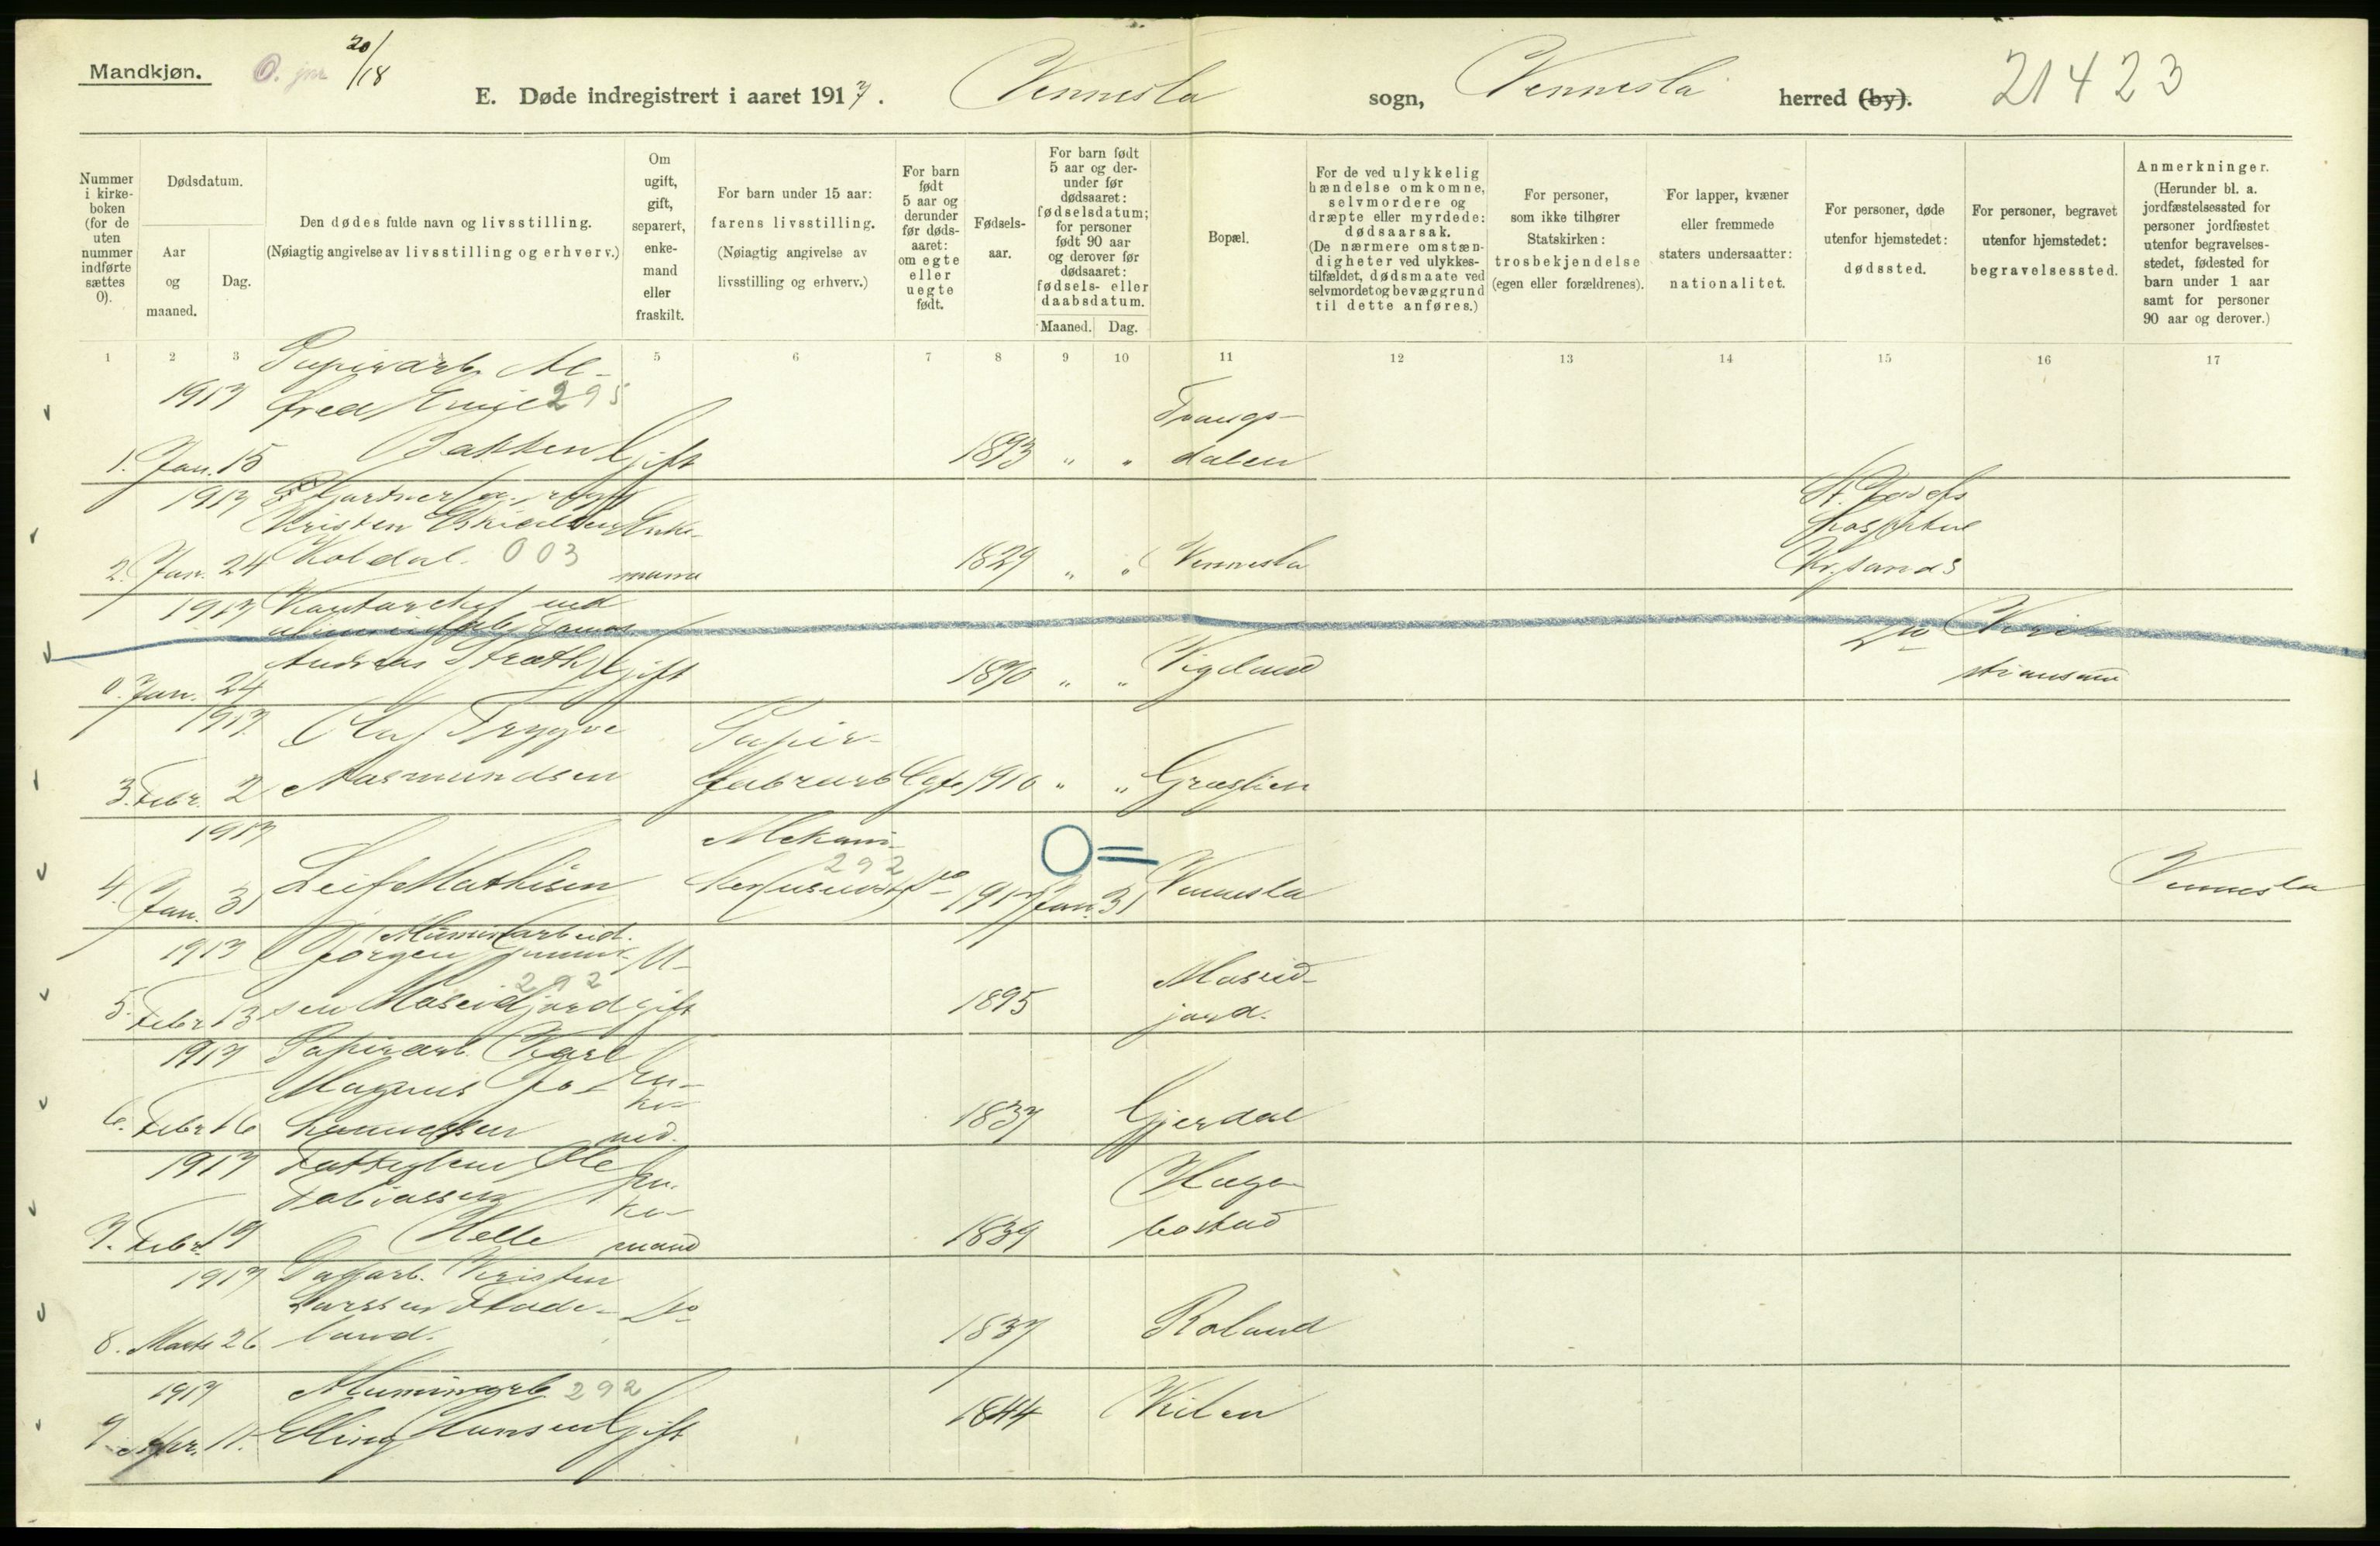 Mandkjøn.
20/18
E. Døde indregistrert i aaret 1917. Vennesla sogn, Vennesla herred (by). 21423
Nummer i kirkeboken (for de uten nummer indførte sættes 0).
Dødsdatum.
Aar og maaned.
Dag.
Den dødes fulde navn og livsstilling.
(Nøiagtig angivelse av livsstilling og erhverv.)
Om ugift, gift, separert, enkemand eller fraskilt.
For barn under 15 aar: farens livsstilling.
(Nøiagtig angivelse av livsstilling og erhverv.)
For barn født 5 aar og derunder før dødsaaret: om egte eller uegte født.
Fødselsaar.
For barn født 5 aar og derunder før dødsaaret: fødselsdatum; for personer født 90 aar og derover før dødsaaret: fødsels- eller daabsdatum.
Maaned. Dag.
Bopæl.
For de ved ulykkelig hændelse omkomne, selvmordere og dræpte eller myrdede: dødsaarsak.
(De nærmere omstændigheter ved ulykkestilfældet, dødsmaate ved selvmordet og bevæggrund til dette anføres.)
For personer, som ikke tilhører Statskirken: trosbekjendelse (egen eller forældrenes).
For lapper, kvæner eller fremmede staters undersaatter: nationalitet.
For personer, døde utenfor hjemstedet: dødssted.
For personer, begravet utenfor hjemstedet: begravelsessted.
Anmerkninger.
(Herunder bl. a. jordfæstelsessted for personer jordfæstet utenfor begravelsesstedet, fødested for barn under 1 aar samt for personer 90 aar og derover.)
1 2 3 5 6 7 8 9 10 11 12 13 14 15 16 17
Papirarb. Al-
1917 fred 295
1. Jan. 15 Bakken Gift 1893 " " dalen
1917
Kristen Enke-
2. Jan. 24 Koldal. 003 mann 1829 " " Vennesla
hospital
Kr.sands
1917 ved
Andreas Gift 1870 " " Vigeland
0. Jan. 24 Do Kri
stiansand
1917 Olaf Trygve Papir-
3. Febr. 2 Aasmundsen fabrarb Egte 1910 " " Græslien
1917 Mekani-
292
4. Jan. 31 Leif Mathisen ker Do 1917 Jan. 31 Vennesla Vennesla
Aluminarbeid.
1917 Jørgen U-
292 Moseid-
5. Febr 13 sen Moseidjord gift 1895 jord.
1917 Papirarb. Karl
Magnus Jo- En-
ke-
6. Febr 16 hannessen md. 1837 Gjerdal
1917 Ole En- Hæge-
Tobiassen ke-
7. Febr. 19 Helle mand 1839 bostad
1917 Dagarb. Kristen
Larssen Do
8. Marts 26 land. 1837 Roland
1917 Aluminarb. 292
9. Apr. 11. Elling Hansen Gift 1844 Kilen